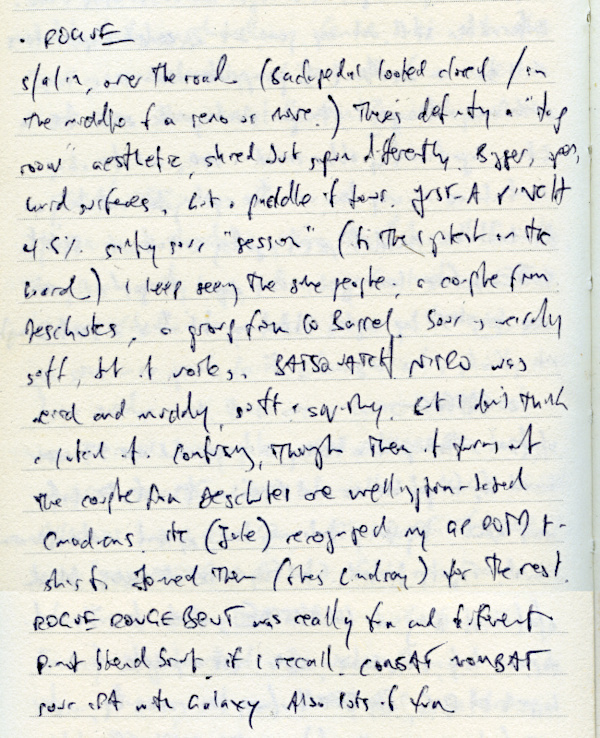 · ROGUE
over the road (Backpedal looked closed / in
the middle of a reno or move.) There's definitely a "tap
room" aesthetic, shared but spun differently. Bigger, yes,
hard surfaces, but a puddle of fours. JUST A PINCH
4.5% salty sour "session" (it's the lightest on the
board) I keep seeing the same people, a couple from
Deschutes, a group from 10 Barrel. Sour is weirdly
soft, but it works. BATSQUATCH NITRO was
weird and muddy, soft & squishy, but I don't think
Confusing, though. Then it turns out
the couple from Deschutes are Wellington-based
Canadians. He (Jake) recognized my GP DOM t-
shirt. Joined them (she's Lindsay) for the rest.
ROGUE ROUGE BRUT was really fun and different
Pinot blend Brut, if I recall. COMBAT WOMBAT
sour IPA with Galaxy. Also lots of fun